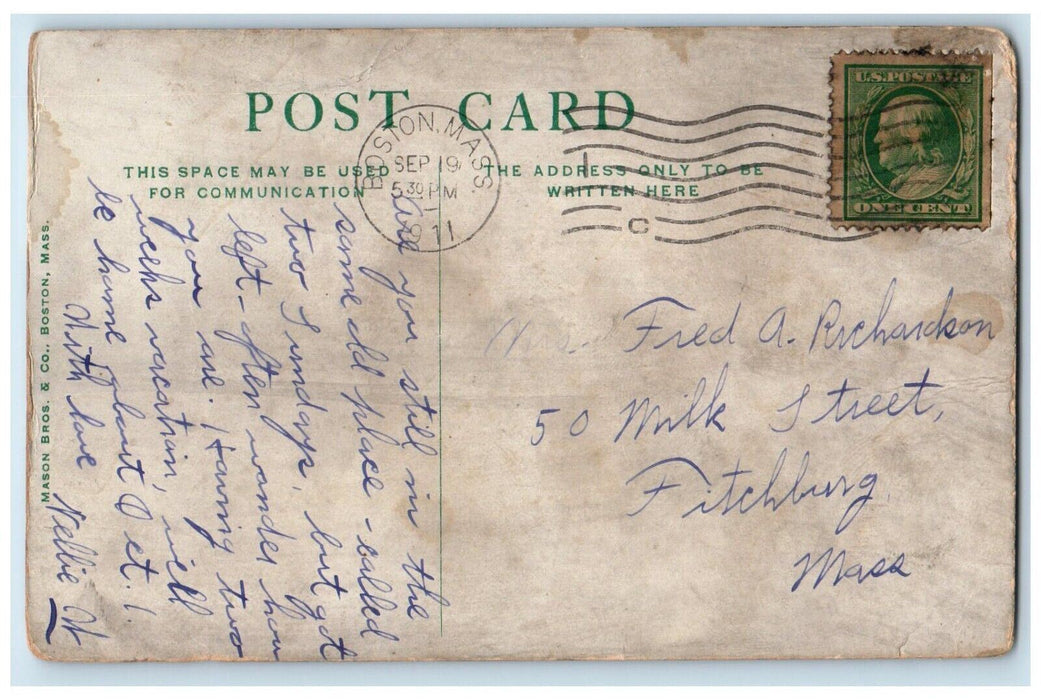 POST CARD
THIS SPACE MAY BE USED
FOR COMMUNICATION
THE ADDRESS ONLY TO BE
WRITTEN HERE
BOSTON, MASS
SEP 19
5 30 PM
1911
C
U.S. POSTAGE
ONE CENT
MASON BROS. & CO., BOSTON, MASS.
Are you still in the
same old place - called
two Sundays, but got
left - often wonder how
you are. Having two
weeks vacation, will
be home about Oct. 1
With love Nellie H
Mrs. Fred A. Richardson
50 Milk Street,
Fitchburg,
Mass